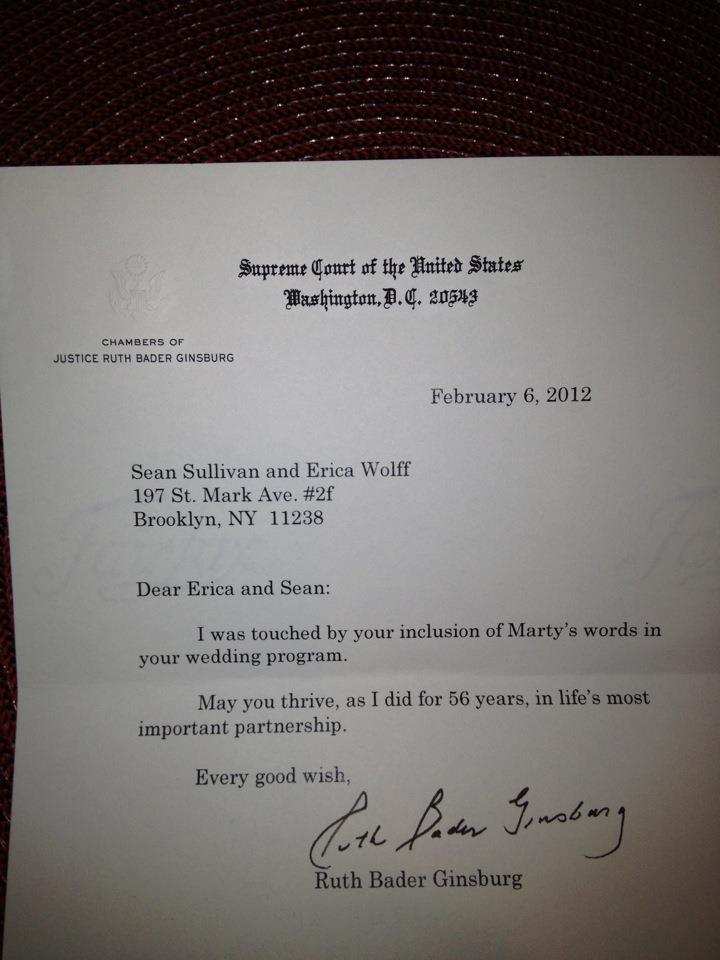 Supreme Court of the United States
Washington, D.C. 20543
CHAMBERS OF
JUSTICE RUTH BADER GINSBURG
February 6, 2012
Sean Sullivan and Erica Wolff
197 St. Mark Ave. #2f
Brooklyn, NY 11238
Dear Erica and Sean:
I was touched by your inclusion of Marty's words in
your wedding program.
May you thrive, as I did for 56 years, in life's most
important partnership.
Every good wish,
Ruth Bader Ginsburg
Ruth Bader Ginsburg